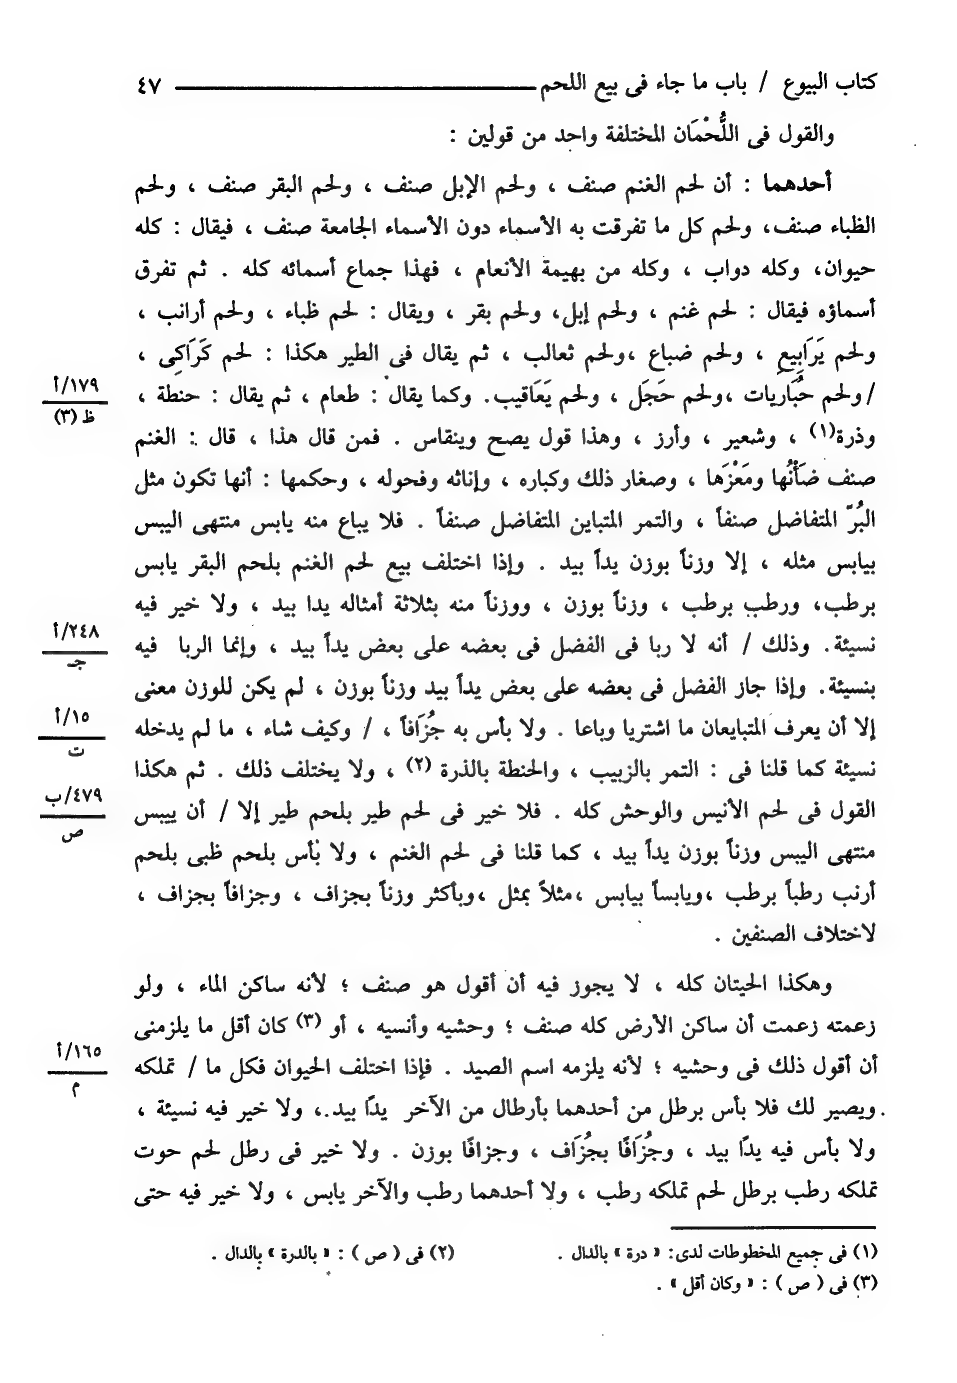 كتاب البيوع / باب ما جاء فى بيع اللحم ٤٧
والقول فى اللُّحْمَان المختلفة واحد من قولين :
أحدهما : أن لحم الغنم صنف ، ولحم الإبل صنف ، ولحم البقر صنف ، ولحم
الظباء صنف، ولحم كل ما تفرقت به الأسماء دون الأسماء الجامعة صنف ، فيقال : كله
حيوان، وكله دواب ، وكله من بهيمة الأنعام ، فهذا جماع أسمائه كله . ثم تفرق
أسماؤه فيقال : لحم غنم ، ولحم إبل، ولحم بقر ، ويقال : لحم ظباء ، ولحم أرانب ،
ولحم يَرَابِيع ، ولحم ضباع ،ولحم ثعالب ، ثم يقال فى الطير هكذا : لحم كَرَاكِى ،
/ولحم حُبَاريات ،ولحم حَجَل ، ولحم يَعَاقيب. وكما يقال : طعام ، ثم يقال : حنطة ،
١٧٩/أ
ظ (٣)
وذرة(١) ، وشعير ، وأرز ، وهذا قول يصح وينقاس . فمن قال هذا ، قال : الغنم
صنف ضَأْنُها ومَعْزَها ، وصغار ذلك وكباره ، وإناثه وفحوله ، وحكمها : أنها تكون مثل
البُرّ المتفاضل صنفاً ، والتمر المتباين المتفاضل صنفاً . فلا يباع منه يابس منتهى اليبس
بيابس مثله ، إلا وزناً بوزن يداً بيد . وإذا اختلف بيع لحم الغنم بلحم البقر يابس
برطب، ورطب برطب ، وزناً بوزن ، ووزناً منه بثلاثة أمثاله يدا بيد ، ولا خير فيه
نسيئة. وذلك / أنه لا ربا فى الفضل فى بعضه على بعض يداً بيد ، وإنما الربا فيه
٢٤٨/أ
جـ
بنسيئة. وإذا جاز الفضل فى بعضه على بعض يداً بيد وزناً بوزن ، لم يكن للوزن معنى
إلا أن يعرف المتبايعان ما اشتريا وباعا . ولا بأس به جُزَافاً ، / وكيف شاء ، ما لم يدخله
١٥/أ
ت
نسيئة كما قلنا فى : التمر بالزبيب ، والحنطة بالذرة (٢) ، ولا يختلف ذلك . ثم هكذا
القول فى لحم الأنيس والوحش كله . فلا خير فى لحم طير بلحم طير إلا / أن ييبس
٤٧٩/ب
ص
منتهى اليبس وزناً بوزن يداً بيد ، كما قلنا فى لحم الغنم ، ولا بأس بلحم ظبى بلحم
أرنب رطباً برطب ،ويابساً بيابس ،مثلاً بمثل ،وبأكثر وزناً بجزاف ، وجزافاً بجزاف ،
لاختلاف الصنفين .
وهكذا الحيتان كله ، لا يجوز فيه أن أقول هو صنف ؛ لأنه ساكن الماء ، ولو
زعمته زعمت أن ساكن الأرض كله صنف ؛ وحشيه وأنسيه ، أو (٣) كان أقل ما يلزمنى
أن أقول ذلك فى وحشيه ؛ لأنه يلزمه اسم الصيد . فإذا اختلف الحيوان فكل ما / تملكه
١٦٥/أ
م
ويصير لك فلا بأس برطل من أحدهما بأرطال من الآخر يدًا بيد، ولا خير فيه نسيئة ،
ولا بأس فيه يدًا بيد ، وجُزَافًا بجُزَاف ، وجزافًا بوزن . ولا خير فى رطل لحم حوت
تملكه رطب برطل لحم تملكه رطب ، ولا أحدهما رطب والآخر يابس ، ولا خير فيه حتى
(١) فى جميع المخطوطات لدى: « درة » بالدال .
(٢) فى ( ص ) : « بالدرة » بالدال .
(٣) فى ( ص ) : « وكان أقل » .